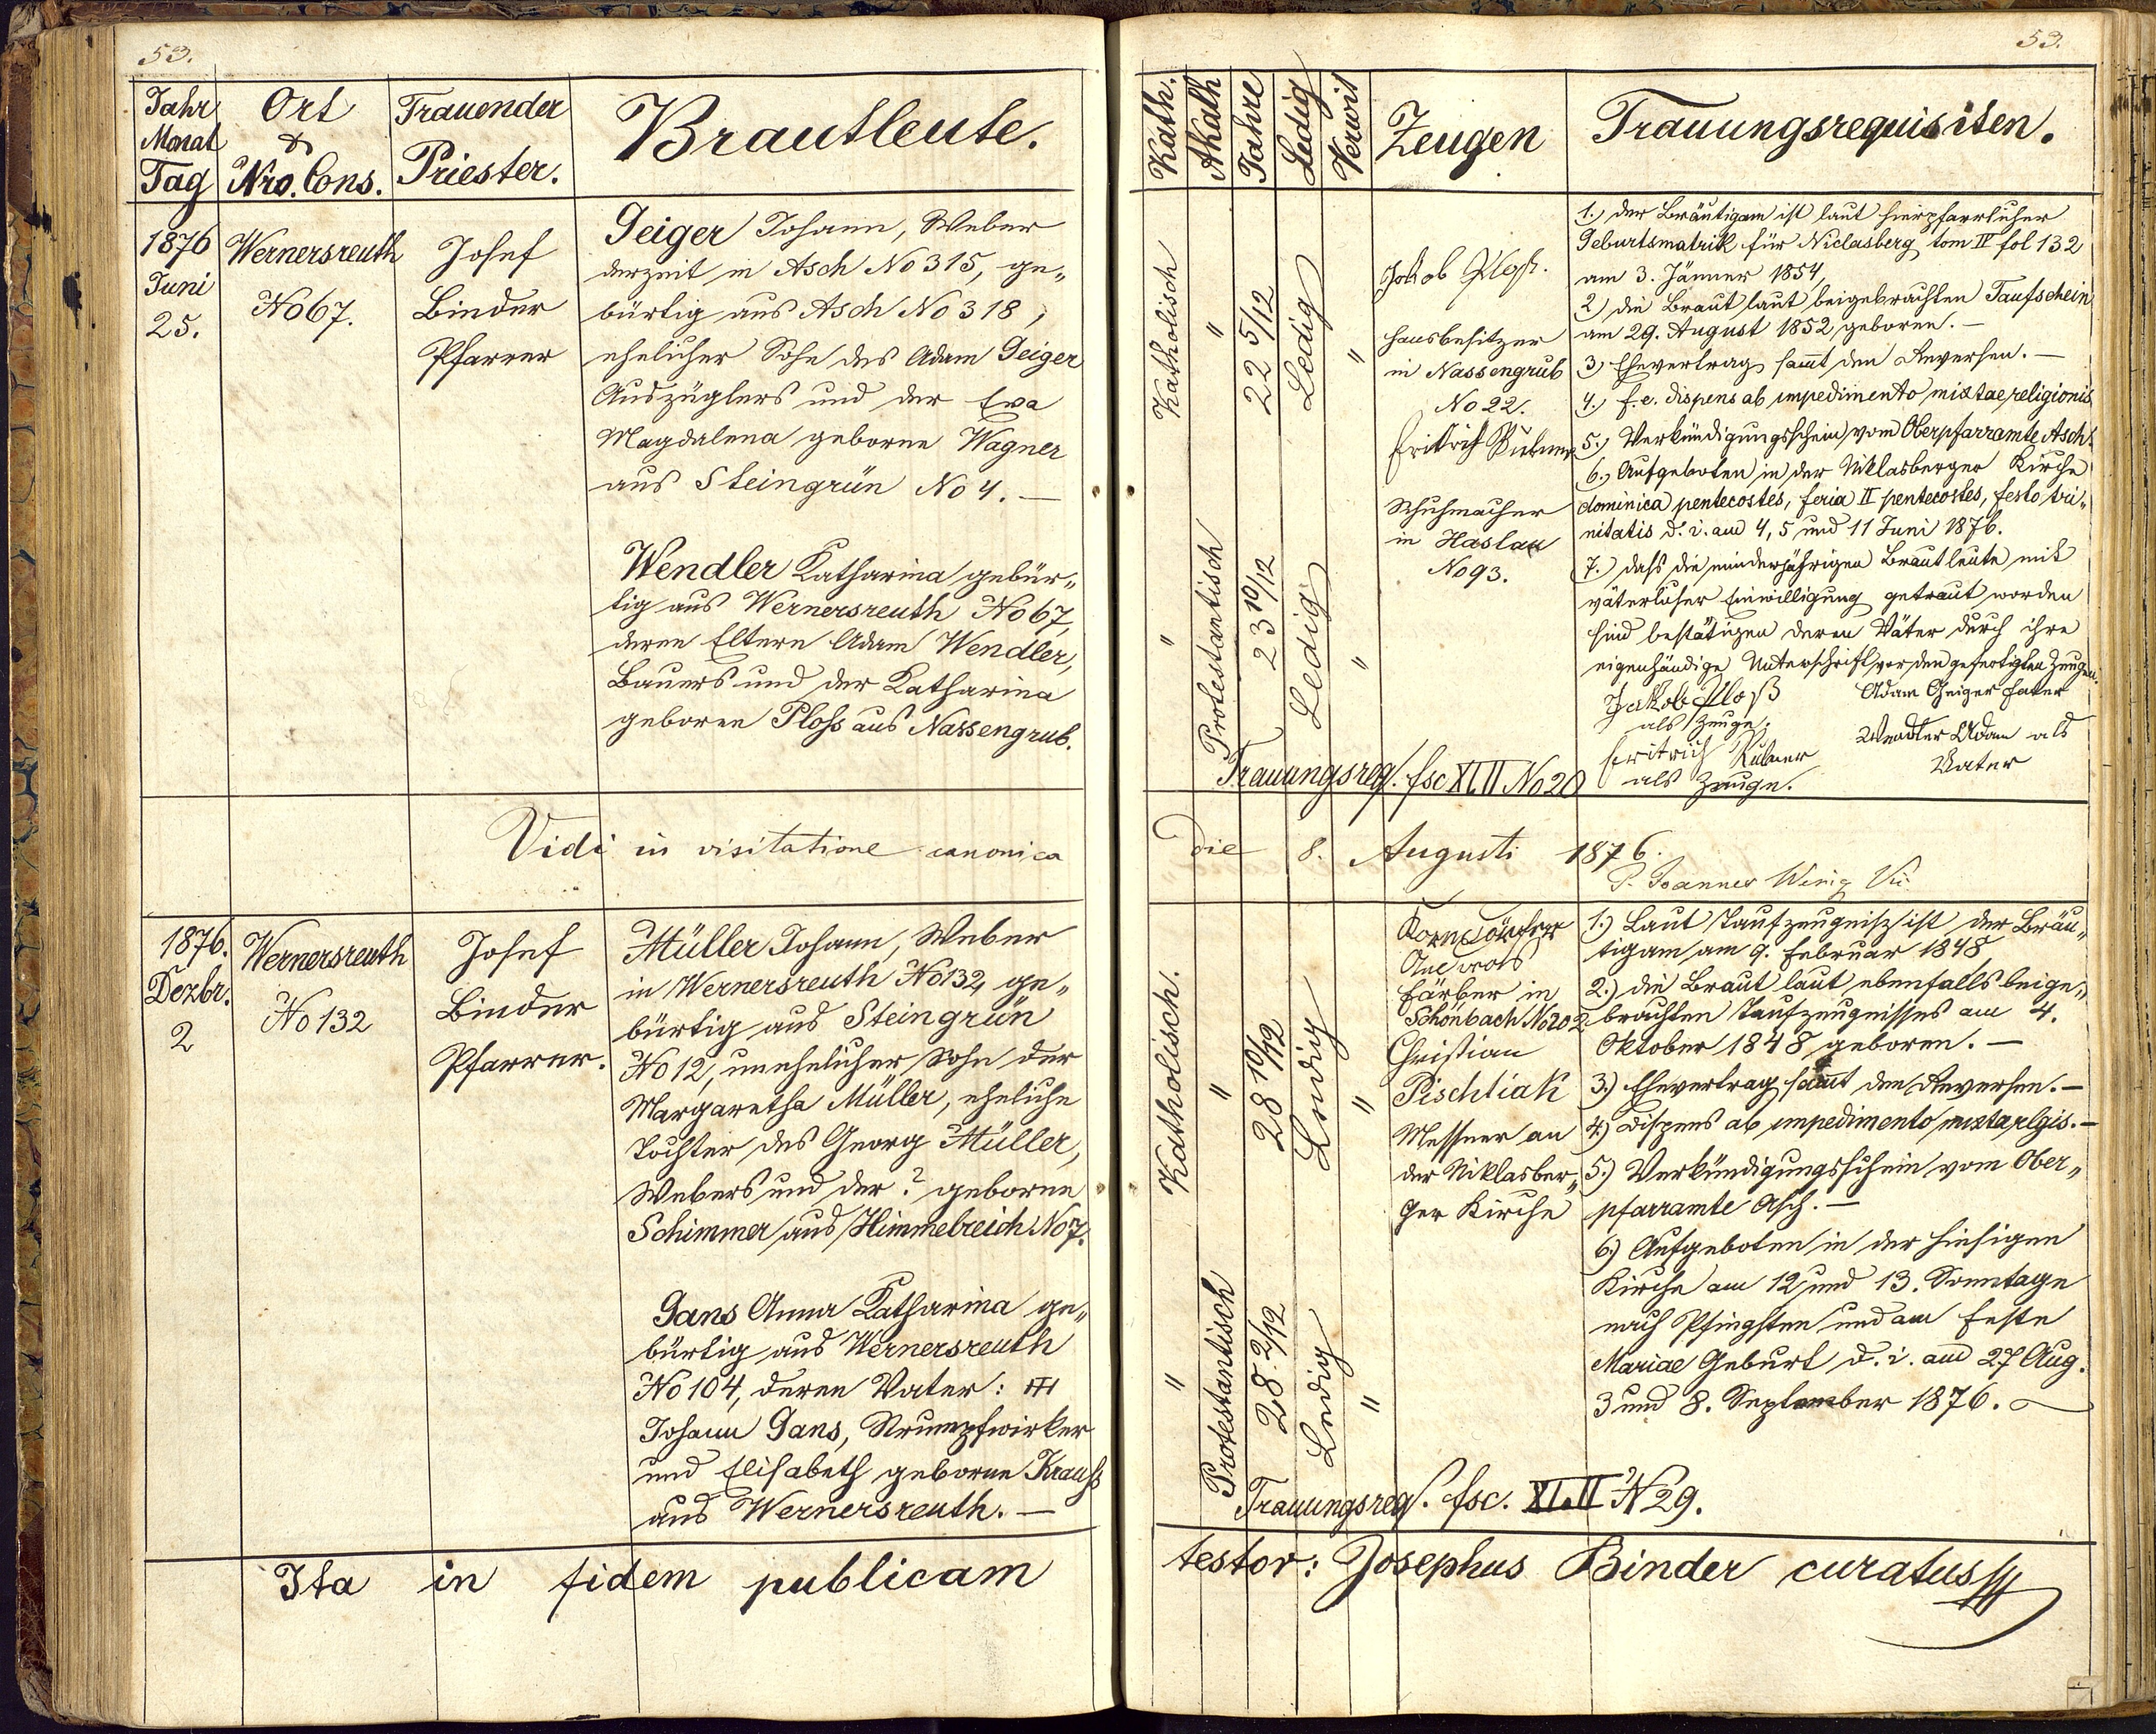 53.
Jahr
Monat
Tag
Ort
&
Nro. Cons.
Trauender
Priester.
Brautleute.
1876
Juni
25.
Wernersreuth
No 67.
Josef
Binder
Pfarrer
Geiger Johann, Weber
derzeit in Asch No 315, ge„
bürtig aus Asch No 318,
ehelicher Sohn des Adam Geiger
Auszüglers und der Eva
Magdalena geborne Wagner
aus Steingrün No 4. —
Wendler Katharina gebür„
tig aus Wernersreuth No 67,
deren Eltern Adam Wendler,
Bauers und der Katharina
geboren Ploß aus Nassengrub.
Vidi in visitatione canonica
1876.
Dezbr.
2
Wernersreuth
No 132
Josef
Binder
Pfarrer.
Müller Johann, Weber
in Wernersreuth No 132, ge„
bürtig aus Steingrün
No 12, unehelicher Sohn der
Margaretha Müller, eheliche
Tochter des Georg Müller,
Webers und der ? geborne
Schimmer aus Himmelreich No 7.
Gans Anna Katharina ge„
bürtig aus Wernersreuth
No 104, deren Vater:
Johann Gans, Strumpfwirker
und Elisabeth geborne Krauß
aus Wernersreuth. —
Ita in fidem publicam
53.
Kath.
Akath
Jahre
Ledig
Verwit
Zeugen
Trauungsrequisiten.
Katholisch
"
22 5/12
Ledig
"
"
Protestantisch
23 10/12
Ledig
"
Jakob Ploß.
Hausbesitzer
in Nassengrub
No 22.
Schuhmacher
in Haslau
No 93.
1.) der Bräutigam ist laut hierpfarrlicher
Geburtsmatrik für Niclasberg tom IV fol 132
am 3. Jänner 1854,
2) die Braut laut beigebrachten Taufschein
am 29. August 1852 geboren. —
3) Ehevertrag sammt den Reversen. —
4.) f. e. dispens ab impedimento mixtae religionis
5.) Verkündigungsschein vom Oberpfarramte Asch.
6.) Aufgeboten in der Niklasberger Kirche
dominica pentecostes, feria II pentecostes, festo tri„
nitatis d. i. am 4, 5 und 11 Juni 1876.
7.) daß die minderjährigen Brautleute mit
väterlicher Einwilligung getraut worden
sind bestätigen deren Väter durch ihre
eigenhändige Unterschrift vor den gefertigten Zeugen.
Jakob Ploß
als Zeuge.
Adam Geiger Fater
Wendler Adam als
Vater
als Zeuge.
Trauungsreq. fsc XLII No 20
Die 8. Augusti 1876.
P. Joannes
Katholisch.
"
28 10/12
Ledig
"
"
Protestantisch
28. 2/12
Ledig
"
Färber in
Schönbach No 202
Christian
Pischtiak
Messner an
der Niklasber„
ger Kirche
1.) Laut Taufzeugniß ist der Bräu„
tigam am 9. Februar 1848,
2.) die Braut laut ebenfalls beige„
brachten Taufzeugnisses am 4.
Oktober 1848 geboren. —
3.) Ehevertrag sammt den Reversen. —
4.) Dispens ab impedimento mixta rlgis. —
5.) Verkündigungsschein vom Ober„
pfarramte Asch. —
6.) Aufgeboten in der hiesigen
Kirche am 12 und 13. Sonntage
nach Pfingsten und am Feste
Mariae Geburt d. i. am 27 Aug.
3 und 8. September 1876.
Trauungsreq. fsc. XLII N 29.
testor: Josephus Binder curatus